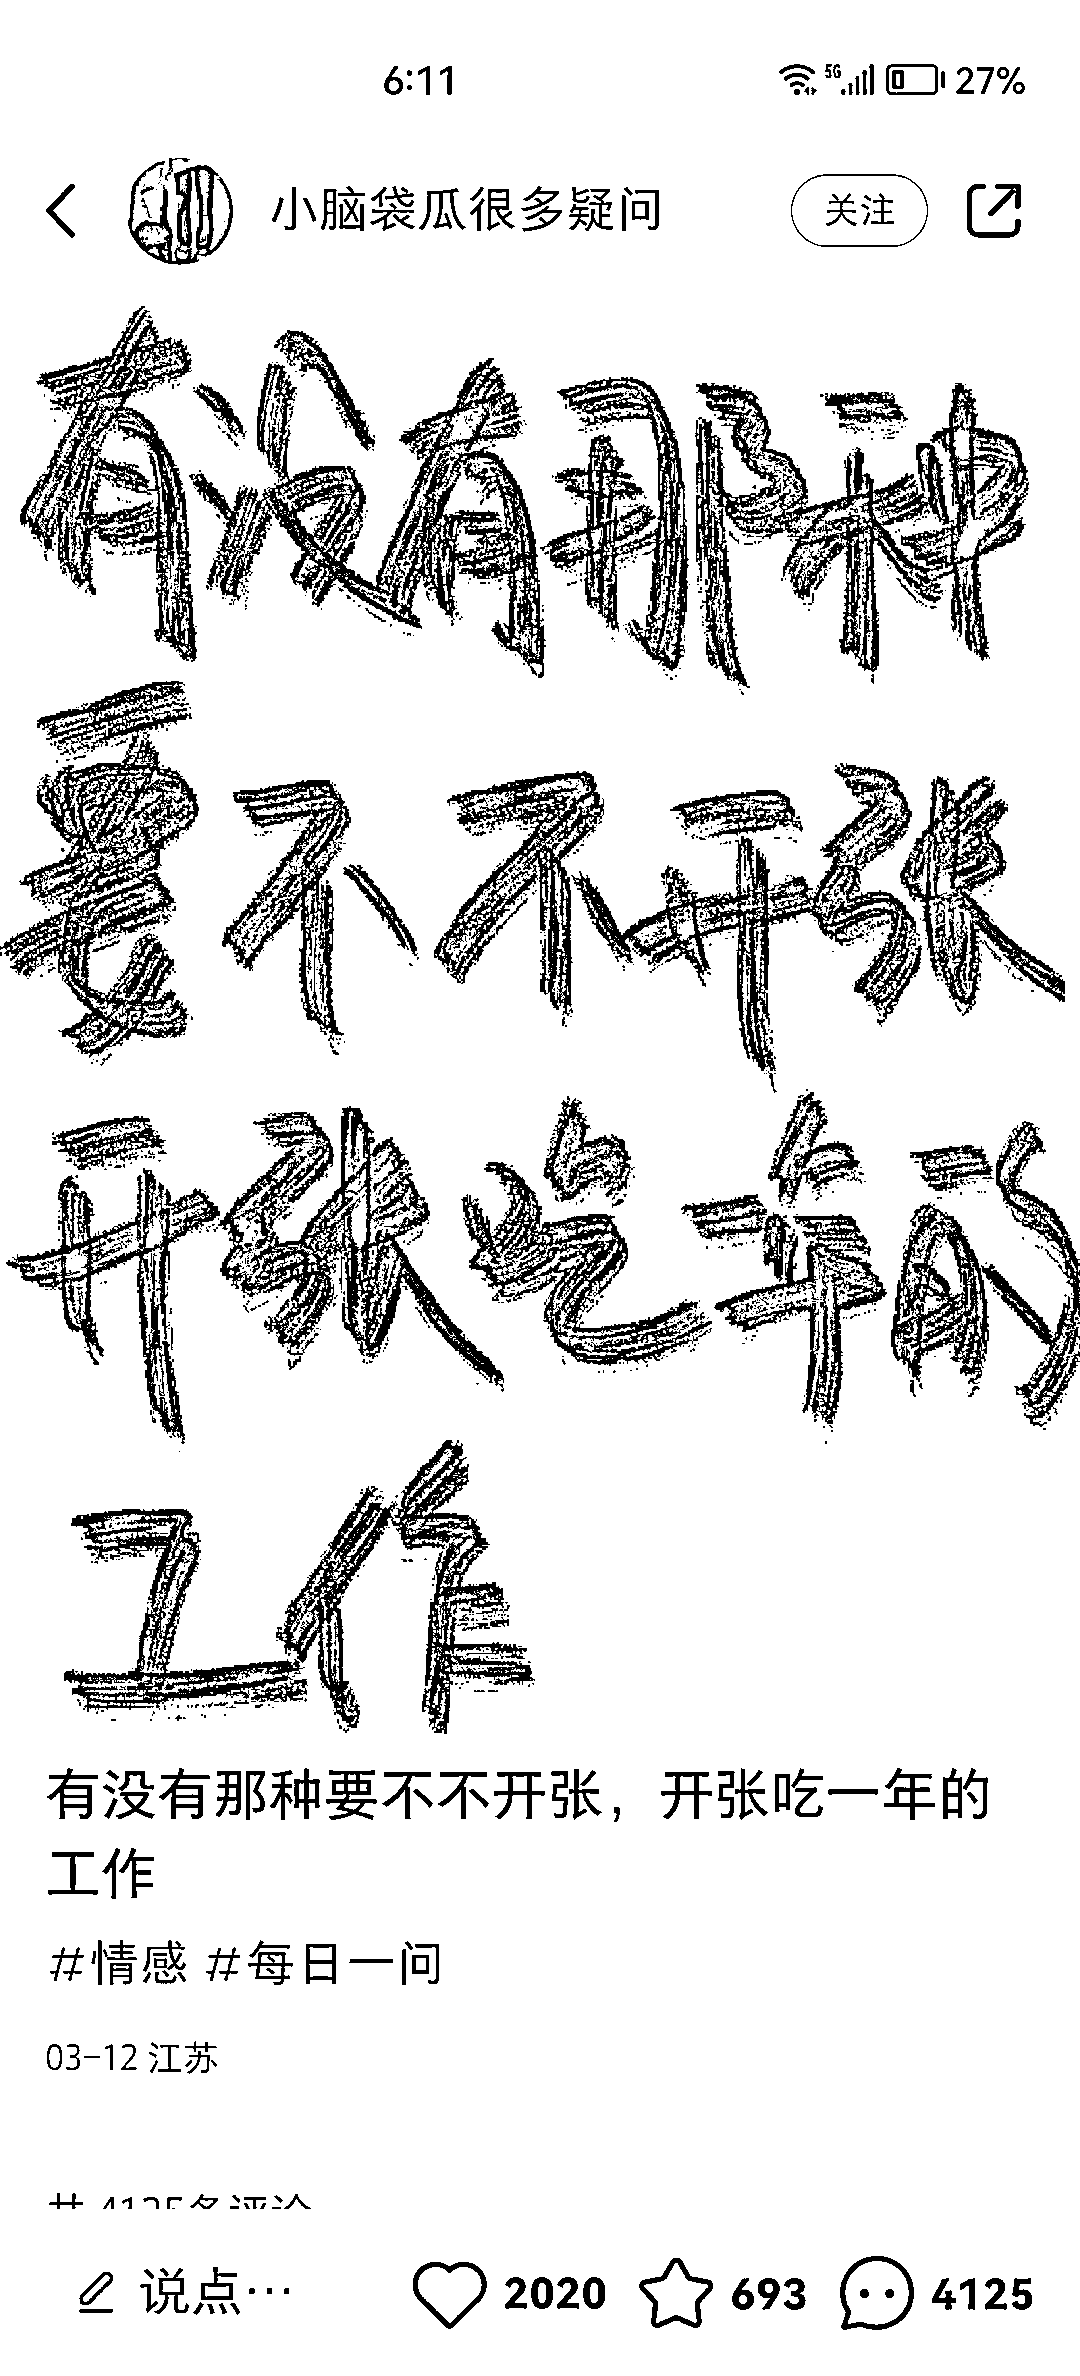 6:11
5G 27%
小脑袋瓜很多疑问
关注
有没有那种
要不不开张
开张吃年的
工作
有没有那种要不不开张，开张吃一年的
工作
#情感 #每日一问
03-12 江苏
共 4125条评论
说点...
2020 693 4125